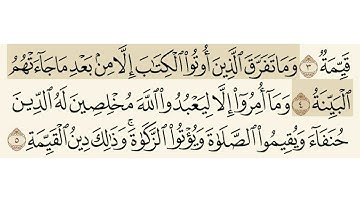 قَيِّمَةٌ ۝٣ وَمَا تَفَرَّقَ ٱلَّذِينَ أُوتُوا۟ ٱلْكِتَٰبَ إِلَّا مِنۢ بَعْدِ مَا جَآءَتْهُمُ
ٱلْبَيِّنَةُ ۝٤ وَمَآ أُمِرُوٓا۟ إِلَّا لِيَعْبُدُوا۟ ٱللَّهَ مُخْلِصِينَ لَهُ ٱلدِّينَ
حُنَفَآءَ وَيُقِيمُوا۟ ٱلصَّلَوٰةَ وَيُؤْتُوا۟ ٱلزَّكَوٰةَ ۚ وَذَٰلِكَ دِينُ ٱلْقَيِّمَةِ ۝٥